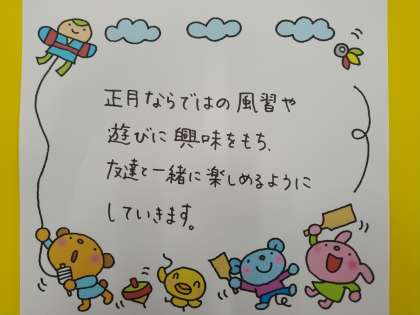 正月ならではの風習や
遊びに興味をもち、
友達と一緒に楽しめるように
していきます。